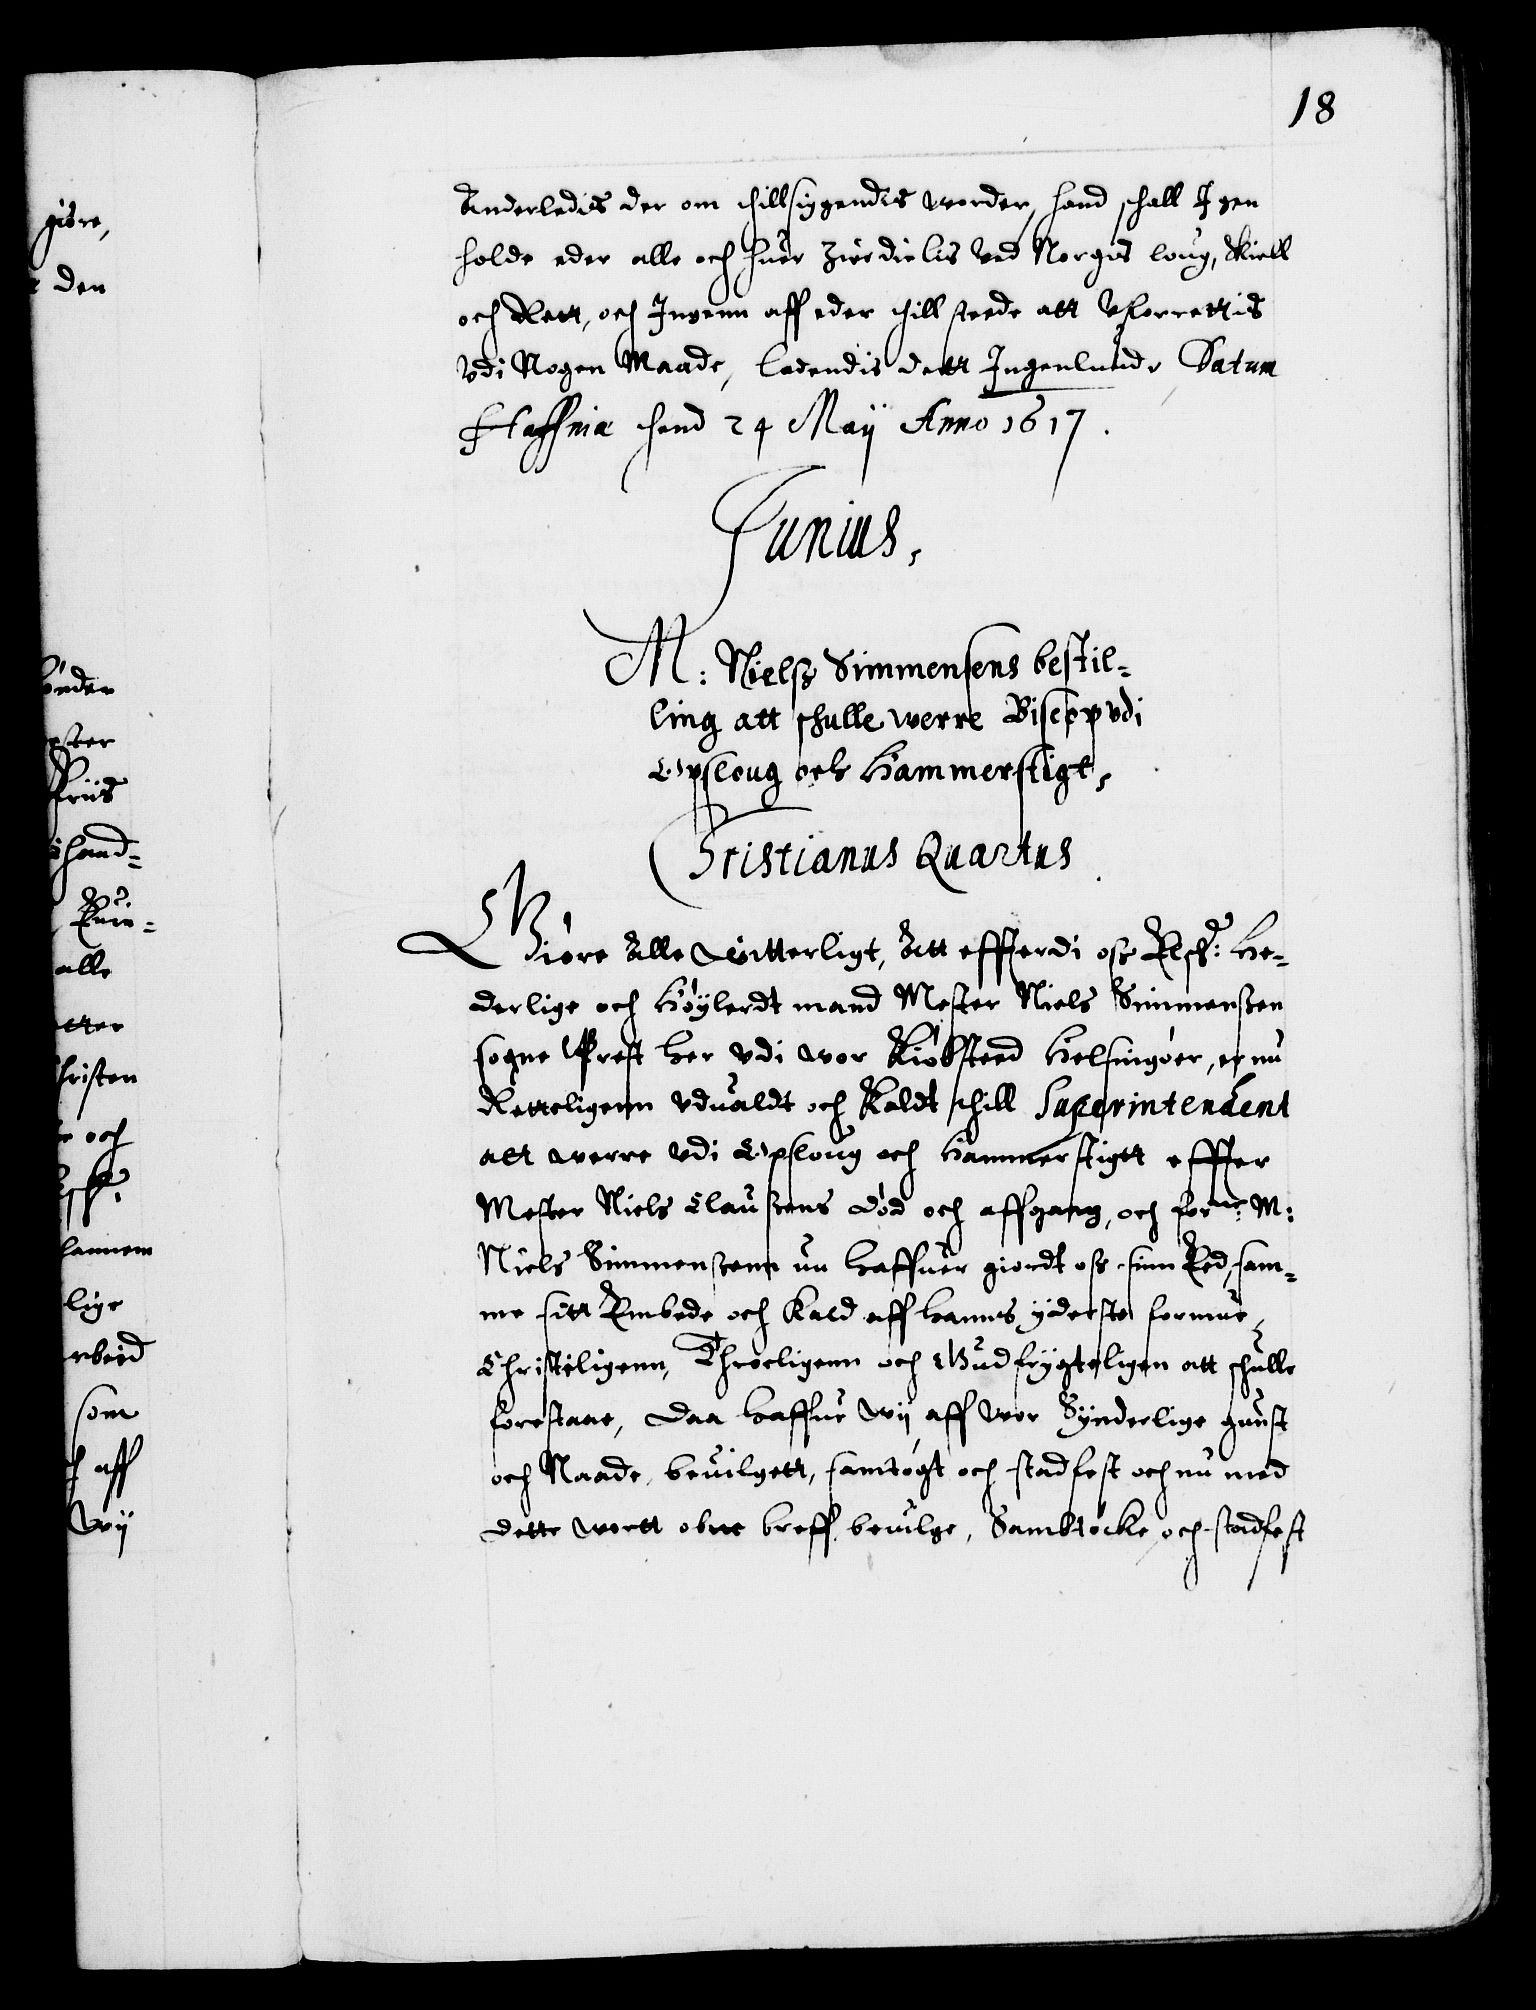 18
Anderledis der om thillsigendis worder, hand schall Igen
holde eder alle och huer serdielis ved Norgis loug, Skiell
och Rett, och Ingenn aff eder thillstede att vforrettis
vdi Nogen Maade, ladendis dett Ingenlunde Datum
Haffniæ thend 24 Maÿ Anno 1617.
Junius,
M: Nielss Simmensens bestil-
ling att schulle werre Biscop vdi
Opsloug och Hammerstigt,
Christianus Quartus
Giøre Alle witterligt, Att effterdi oss Elsk: He-
derlige och Høylerdt mand Mester Niels Simmenssen
sogne Prest her vdi wor Kiøbsteed Helsingøer, er nu
Retteligenn vduoldt och Kaldt thill Superintendent
att werre vdi Opsloug och Hammerstigtt effter
Mester Niels Claussens død och affgang, och forne: M:
Niels Simmenssenn nu haffuer giordt oss sinn Eed, sam-
me sitt Embede och Kald aff hanns ÿderste formue,
Christeligenn, Throeligenn och Gudfrÿgteligen att schulle
forestaae, Daa haffue Wij aff wor Sÿnderlige gunst
och Naade, beuilgett, samtøgt och stadfest och nu med
dette wortt obne breff beuilge, Samktøcke och stadfest
gisre,
den
bønder
Friis
haand-
alle
etter
hristen
och
lige
rbeid
som
aff
Wij